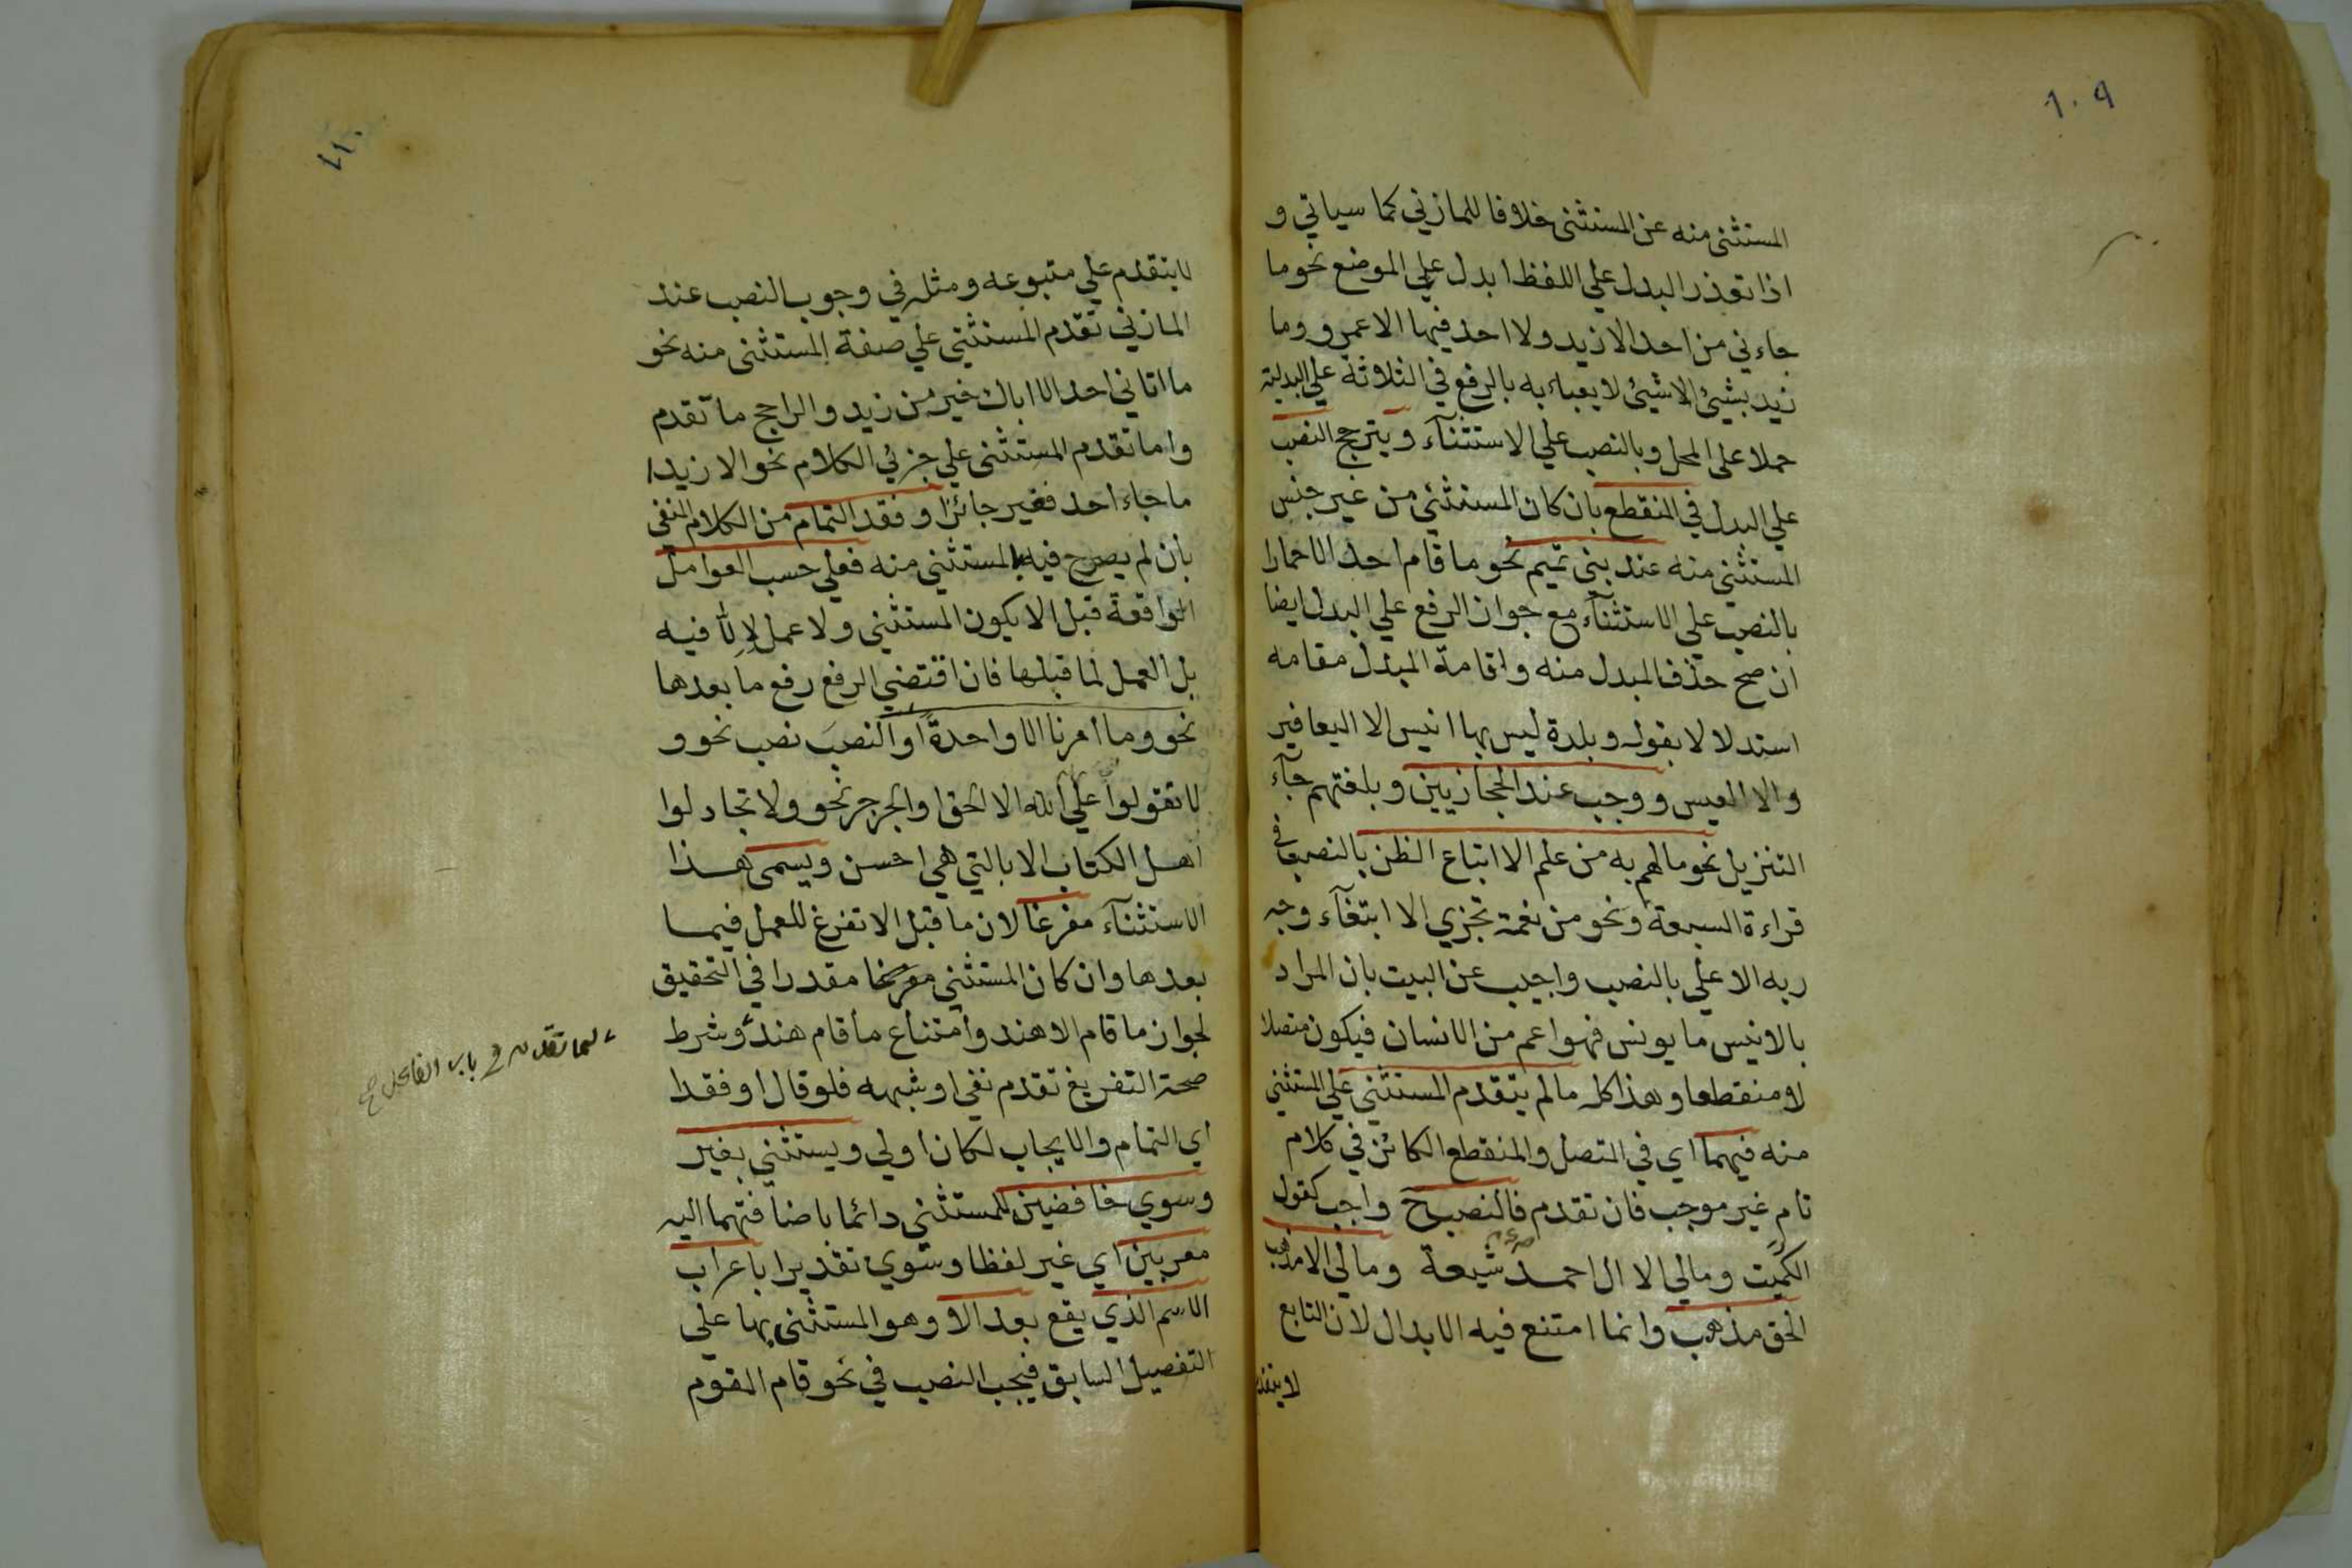 ١٠٩
المستثنى منه عن المستثنى خلافا للمازني كما سياتي و
اذا تعذر البدل علي اللفظ ابدل علي الموضع نحو ما
جاءني من احد الا زيد ولا احد فيها الا عمرو وما
زيد بشيئ الا شيئ لا يعباء به بالرفع في الثلاثة علي البدلية
حملا على المحل وبالنصب علي الاستثنآء ويترجح النصب
علي البدل في المنقطع بان كان المستثني من غير جنس
المستثني منه عند بني تميم نحو ما قام احد الا حمارا
بالنصب علي الاستثنآء مع جواز الرفع علي البدل ايضا
ان صح حذف المبدل منه واقامة المبدل مقامه
استدلالا بقوله وبلدة ليس بها انيس الا اليعافير
والا العيس ووجب عند الحجازيين وبلغتهم جآء
التنزيل نحو ما لهم به من علم الا اتباع الظن بالنصب في
قراءة السبعة ونحو من نعمة تجزي الا ابتغآء وجه
ربه الاعلي بالنصب واجيب عن البيت بان المراد
بالانيس ما يونس فهو اعم من الانسان فيكون متصلا
لا منقطعا وهذا كله ما لم يتقدم المستثني علي المستثني
منه فيهما اي في المتصل والمنقطع الكائن في كلام
تام غير موجب فان تقدم فالنصب ح واجب كقول
الكميت ومالي الا ال احمد شيعة ومالي الا مذهب
الحق مذهب وانما امتنع فيه الابدال لان التابع
لا يتقدم
١١٠
لا يتقدم علي متبوعه ومثله في وجوب النصب عند
المازني تقدم المستثني علي صفة المستثنى منه نحو
ما اتاني احد الا اباك خير من زيد والراجح ما تقدم
واما تقدم المستثنى علي جزئي الكلام نحو الا زيدا
ما جاء احد فغير جائز او فقد التمام من الكلام المنفي
بان لم يصرح فيه بالمستثني منه فعلي حسب العوامل
الواقعة قبل الا يكون المستثني ولا عمل لإلّا فيه
بل العمل لما قبلها فان اقتضي الرفع رفع ما بعدها
نحو وما أمرنا الا واحدة او النصب نصب نحو و
لا تقولوا علي الله الا الحق او الجر جر نحو ولا تجادلوا
اهل الكتاب الا بالتي هي احسن ويسمى هذا
الاستثنآء مفرغا لان ما قبل الا تفرغ للعمل فيما
بعدها وان كان المستثني مفرغا مقدرا في التحقيق
لجواز ما قام الا هند وامتناع ما قام هند وشرط
لما تقدم في باب الفاعل صح
صحة التفريغ تقدم نفي او شبهه فلو قال او فقدا
اي التمام والايجاب لكان اولي ويستثني بغير
وسوي خافضين للمستثني دائما باضافتهما اليه
معربين اي غير لفظا وسوي تقديرا باعراب
الاسم الذي يقع بعد الا وهو المستثنى بها علي
التفصيل السابق فيجب النصب في نحو قام القوم